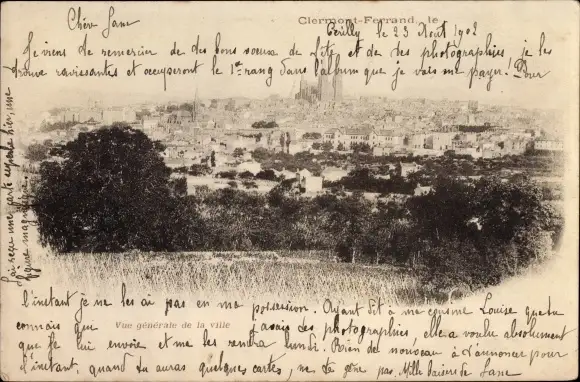 Clermont-Ferrand, le
Chère Jane
Cerilly le 23 Août 1902
Je viens de remercier de des bons vœux de fête et de tes photographies, je les
trouve ravissantes et occuperont le 1er rang dans l'album que je vais me payer. Pour
l'instant je ne les ai pas en ma possession. Ayant dit à ma cousine Louise que tu
connais que
Vue générale de la ville
j'avais des photographies, elle a voulu absolument
que je lui envoie et me les rendra lundi. Rien de nouveau à t'annoncer pour
l'instant, quand tu auras quelques cartes, ne te gêne pas. Mille baisers de Jane
J'ai reçu une carte superbe hier, une
figure magnifique